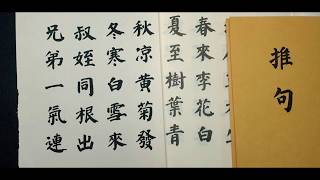 推句
春來李花白
夏至樹葉青
秋凉黃菊發
冬寒白雪來
叔姪同根出
兄第一氣連